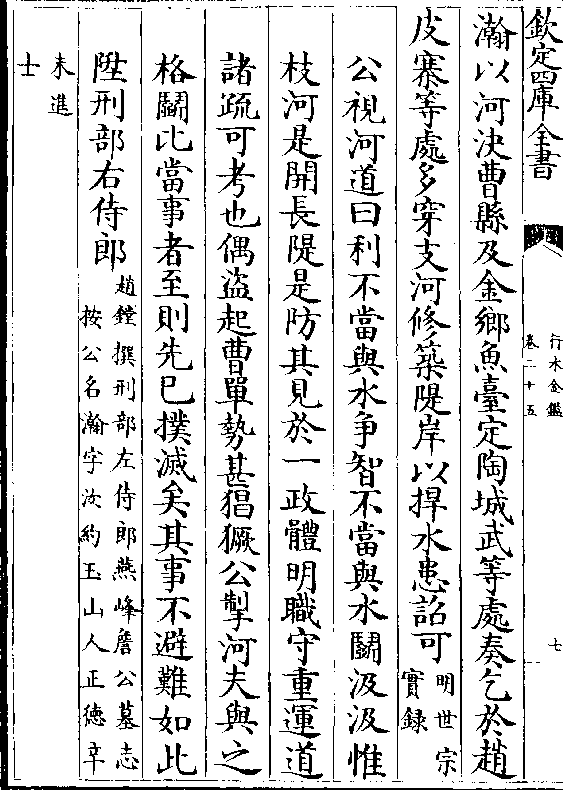 欽定四庫全書
行水金鑑
卷二十五
七
瀚以河決曹縣及金鄉魚臺定陶城武等處奏乞於趙
皮寨等處多穿支河修築隄岸以捍水患詔可
明世宗
實録
公視河道曰利不當與水争智不當與水鬭汲汲惟
枝河是開長隄是防其見於一政體明職守重運道
諸疏可考也偶盜起曹單勢甚猖獗公掣河夫與之
格鬭比當事者至則先已撲滅矣其事不避難如此
陞刑部右侍郎
趙鏜撰刑部左侍郎燕峰詹公墓志
按公名瀚字汝約玉山人正德辛
未進
士